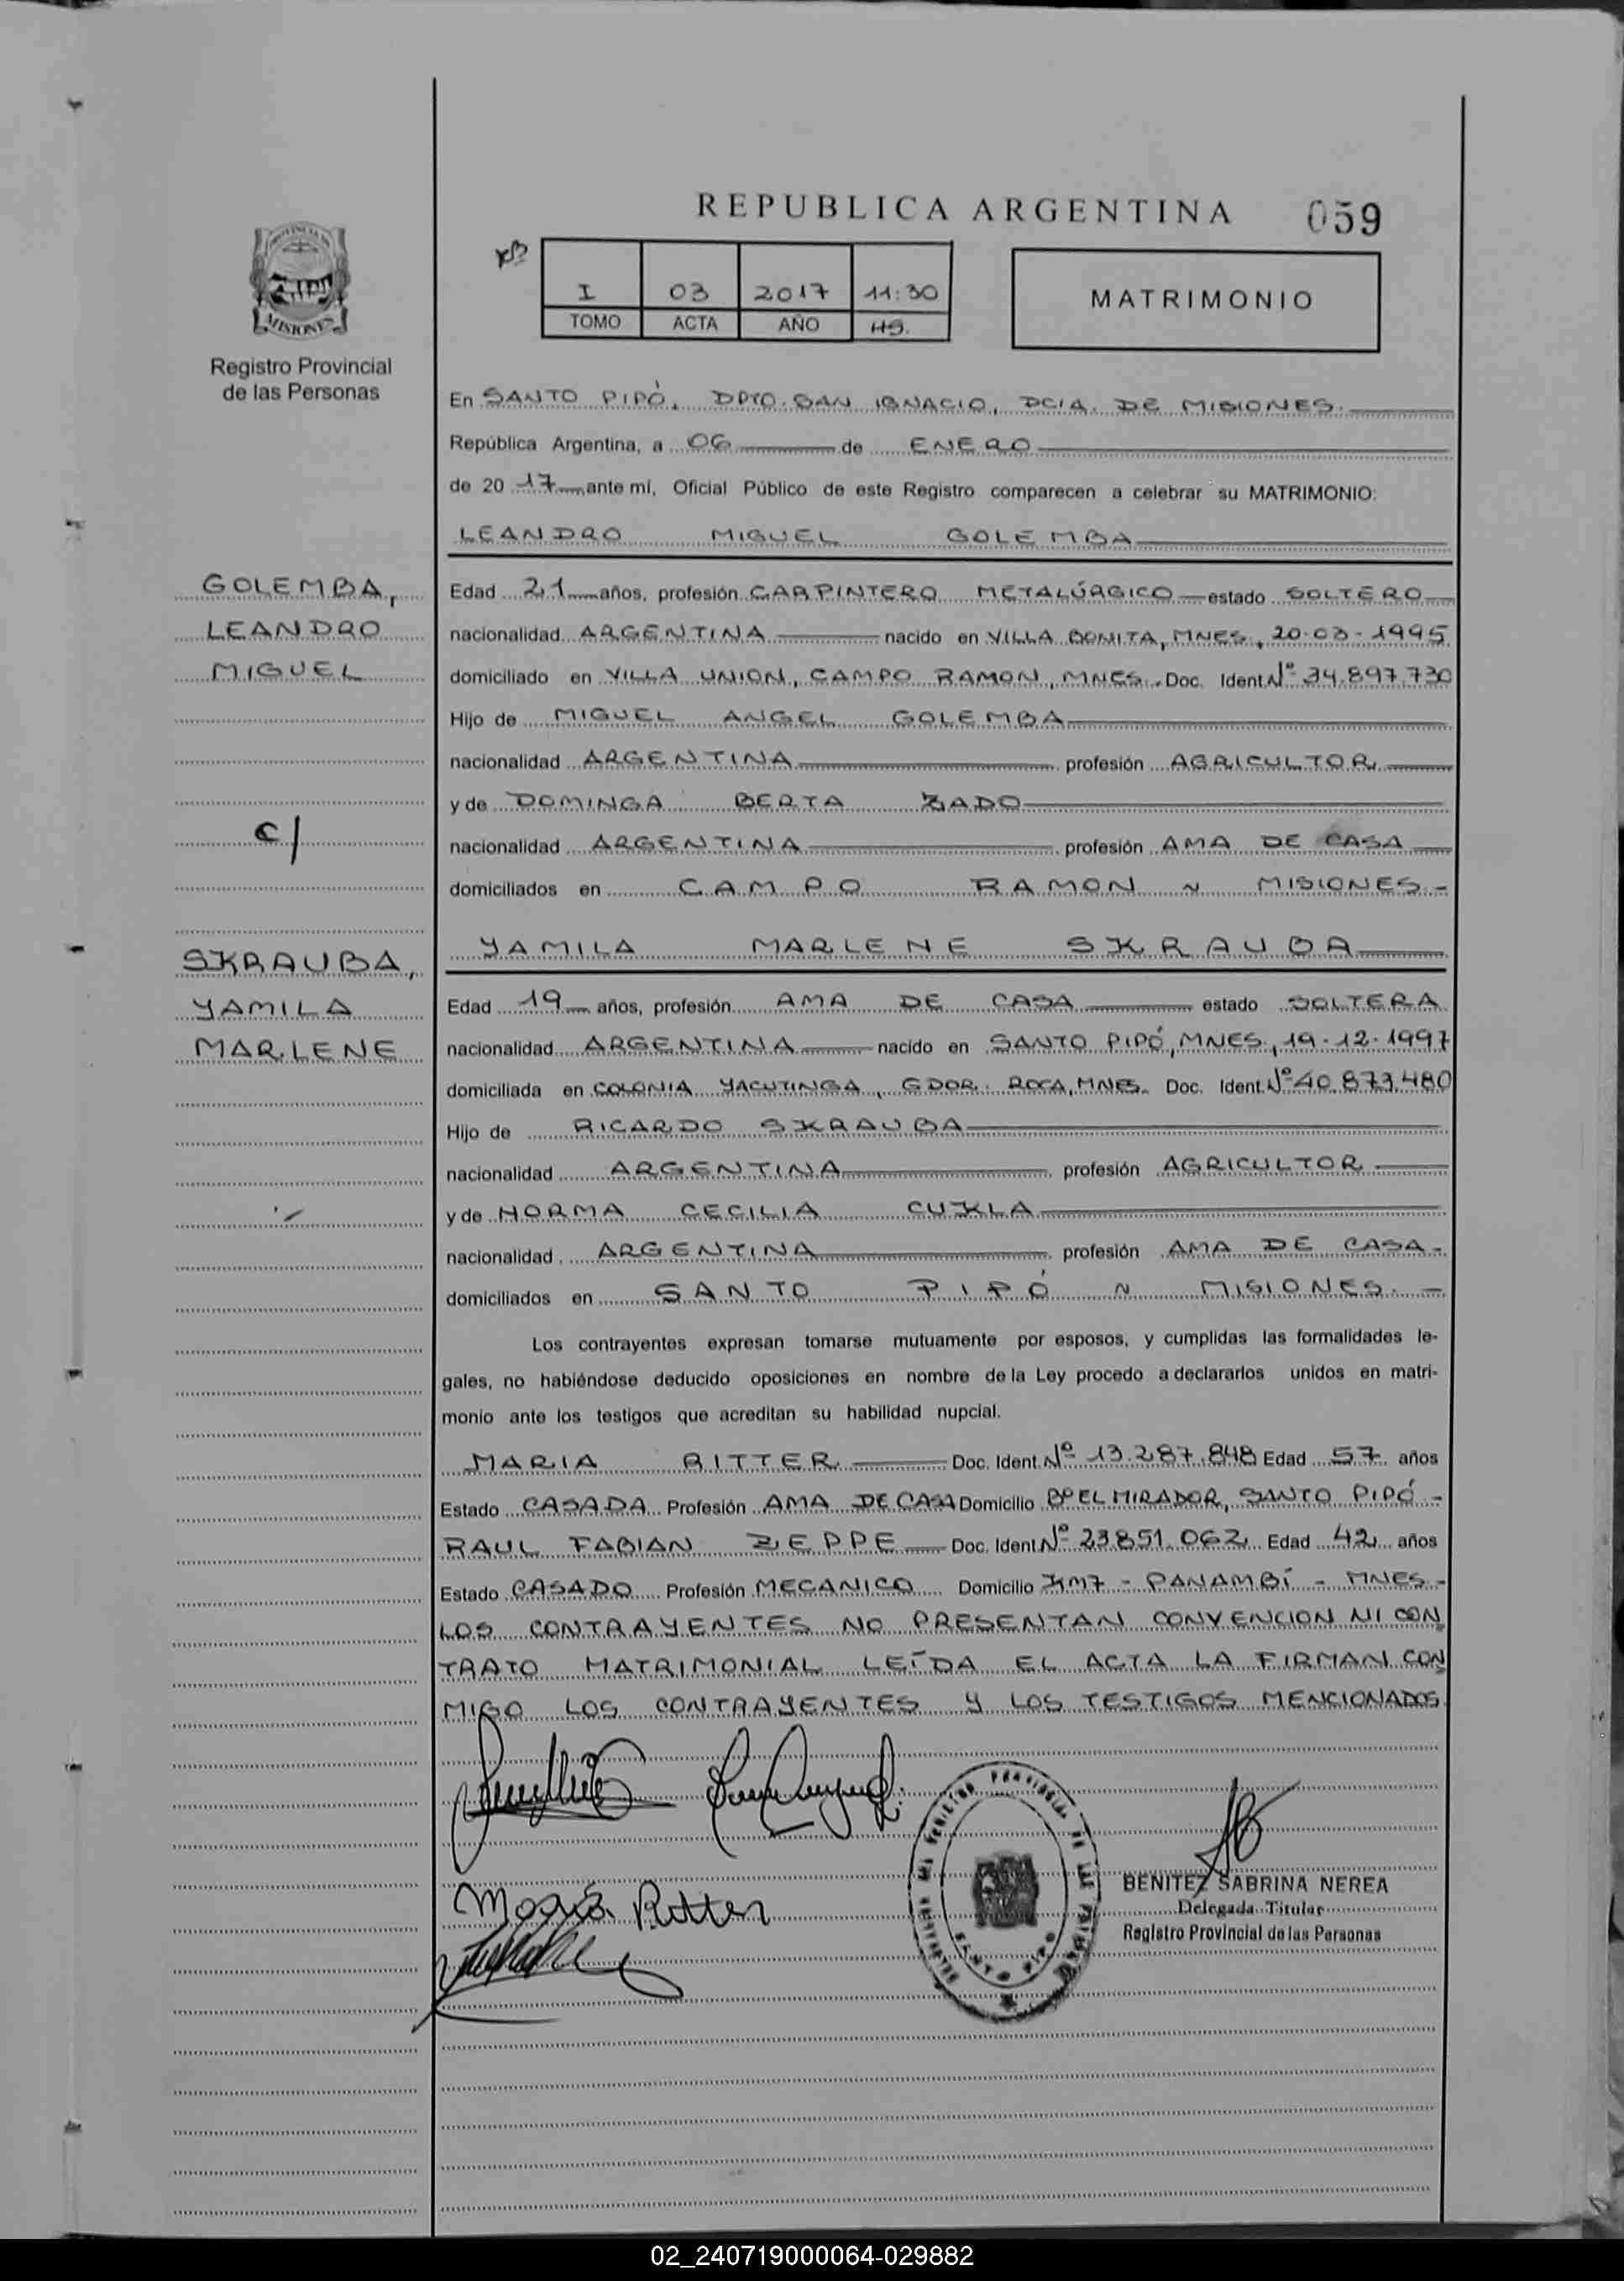 REPUBLICA ARGENTINA 059
I 03 2017 11:30
TOMO ACTA AÑO HS.
MATRIMONIO
MISIONES
Registro Provincial
de las Personas
En SANTO PIPÓ, DPTO. SAN IGNACIO, PCIA. DE MISIONES.
República Argentina, a 06 de ENERO
de 20 17 ante mí, Oficial Público de este Registro comparecen a celebrar su MATRIMONIO:
LEANDRO MIGUEL GOLEMBA
GOLEMBA,
LEANDRO
MIGUEL
Edad 21 años, profesión CARPINTERO METALÚRGICO estado SOLTERO
nacionalidad ARGENTINA nacido en VILLA BONITA, MNES, 20-03-1995
domiciliado en VILLA UNION, CAMPO RAMON, MNES. Doc. Ident. Nº 34.897.730
Hijo de MIGUEL ANGEL GOLEMBA
nacionalidad ARGENTINA profesión AGRICULTOR
y de DOMINGA BERTA ZADO
nacionalidad ARGENTINA profesión AMA DE CASA
domiciliados en CAMPO RAMON ~ MISIONES.-
C/
SKRAUBA,
YAMILA
MARLENE
YAMILA MARLENE SKRAUBA
Edad 19 años, profesión AMA DE CASA estado SOLTERA
nacionalidad ARGENTINA nacido en SANTO PIPÓ, MNES, 19-12-1997
domiciliada en COLONIA YACUTINGA, GDOR. ROCA, MNES. Doc. Ident. Nº 40.873.480
Hijo de RICARDO SKRAUBA
nacionalidad ARGENTINA profesión AGRICULTOR
y de NORMA CECILIA CUKLA
nacionalidad ARGENTINA profesión AMA DE CASA-
domiciliados en SANTO PIPÓ ~ MISIONES.-
Los contrayentes expresan tomarse mutuamente por esposos, y cumplidas las formalidades le-
gales, no habiéndose deducido oposiciones en nombre de la Ley procedo a declararlos unidos en matri-
monio ante los testigos que acreditan su habilidad nupcial.
MARIA RITTER Doc. Ident. Nº 13.287.848 Edad 57 años
Estado CASADA Profesión AMA DE CASA Domicilio Bº EL MIRADOR, SANTO PIPÓ-
RAUL FABIAN ZEPPE Doc. Ident Nº 23.851.062 Edad 42 años
Estado CASADO Profesión MECANICO Domicilio KM7 - PANAMBÍ - MNES-
LOS CONTRAYENTES NO PRESENTAN CONVENCION NI CON
TRATO MATRIMONIAL LEÍDA EL ACTA LA FIRMAN CON
MIGO LOS CONTRAYENTES Y LOS TESTIGOS MENCIONADOS.
Maria Ritter
SANTO PIPO
BENITEZ SABRINA NEREA
Delegada Titular
Registro Provincial de las Personas
02_240719000064-029882